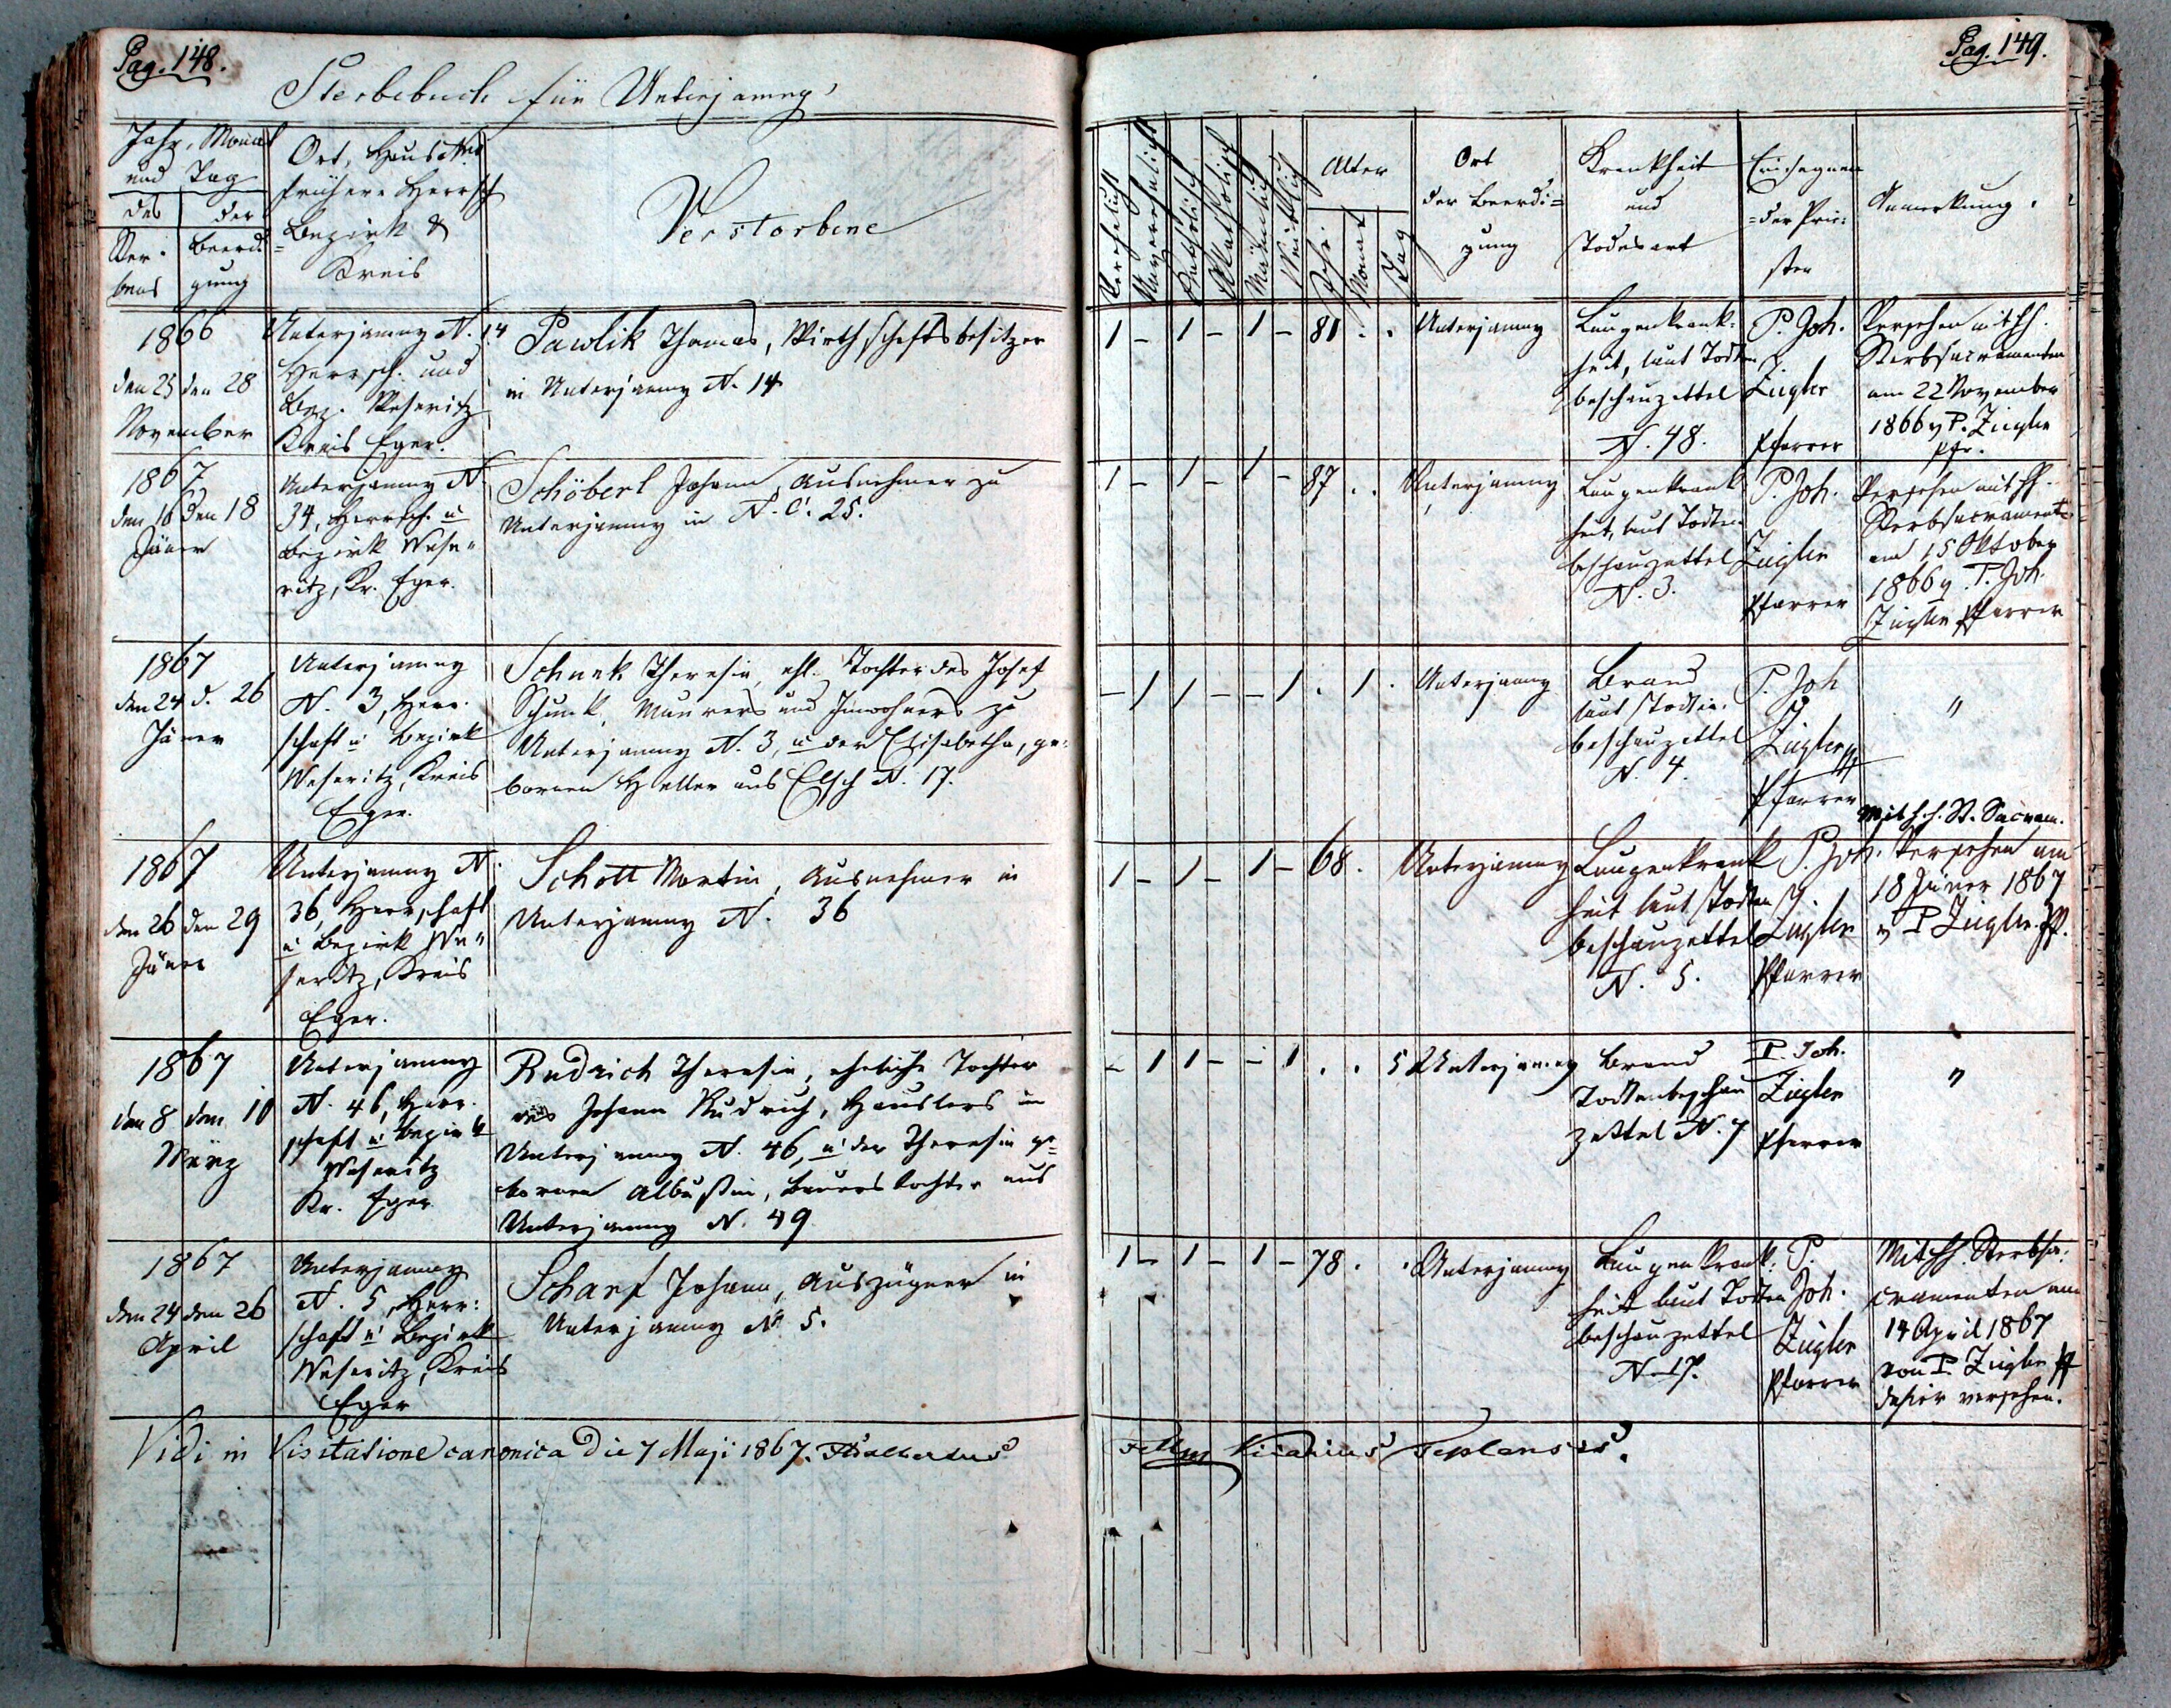 Pag. 148.
Sterbebuch für Unterjamny
Jahr, Monat
und Tag
des
der
Ster-
bens
Beerdi-
gung
Ort, Haus Nro
frühere Herrsch
Bezirk &
Kreis
Verstorbene
1866
den 25 den 28
November
Unterjamny N. 14
Herrsch. und
Bez. Weseritz
Kreis Eger.
Pawlik Thomas, Wirthschaftsbesitzer
in Unterjamny N. 14
1867
den 16 den 18
Jäner
Unterjamny N
34, Herrsch. u
Bezirk Wese-
ritz, Kr. Eger.
Schöberl Johann, Ausnehmer zu
Unterjamny in N. C. 25.
1867
den 24 d. 26
Jäner
Unterjamny
N. 3, Herr-
schaft u Bezirk
Weseritz, Kreis
Eger.
Schunk Theresia, ehl. Tochter des Josef
Schunk, Maurers und Inwohners zu
Unterjamny N. 3, u der Elisabetha, ge-
bornen Heller aus Elsch N. 17.
1867
den 26 den 29
Jäner
Unterjamny N.
36, Herrschaft
u Bezirk We-
seritz, Kreis
Eger.
Schott Martin, Ausnehmer in
Unterjamny N. 36
1867
den 8 den 10
März
Unterjamny
N. 46, Herr-
schaft u Bezirk
Weseritz
Kr. Eger
Rudrich Theresia, eheliche Tochter
des Johann Rudrich, Häuslers in
Unterjamny N. 46, u der Theresia ge-
bornen Albustin, Bauerstochter aus
Unterjamny N. 49
1867
den 24 den 26
April
Unterjamny
N. 5, Herr-
schaft u Bezirk
Weseritz, Kreis
Eger
Scharf Johann, Auszügner in
Unterjamny No 5.
Vidi in Visitatione canonica die 7 Maji 1867.
Pag. 149.
Verehelicht
Unverehelicht
Katholisch
Männlich
Weiblich
Alter
Jahr
Monat
Tag
Ort
der Beerdi-
gung
Krankheit
und
Todesart
Einsegnen-
der Prie-
ster
Anmerkung.
1 - 1 - 1 - 81 . . Unterjamny
Lungenkrank-
heit, laut Todten-
beschauzettel
N. 48.
P. Joh.
Ziegler
Pfarrer
Versehen mit hh.
Sterbsacramenten
am 22 November
1866 v P. Ziegler
Pfr.
1 - 1 - 1 - 87 . . Unterjamny
Lungenkrank
heit, laut Todten-
beschauzettel
N. 3.
P. Joh.
Ziegler
Pfarrer
Versehen mit hh.
Sterbsacrament.
am 15 Oktober
1866 v. P. Joh.
Ziegler Pfarrer
- 1 1 - - 1 . 1 . Unterjamny
Brand
laut Todten-
beschauzettel
N. 4.
P. Joh
Ziegler
Pfarrer
"
1 - 1 - 1 - 68 . Unterjamny
Lungenkrank
heit laut Todten
beschauzettel
N. 5.
P. Joh.
Ziegler
Pfarrer
Mit h.h. St. Sacram.
Versehen am
18 Jäner 1867
v P Ziegler Pf.
- 1 1 - - 1 . . 5 Unterjamny
Brand
Todtenbeschau
zettel N. 7
P. Joh.
Ziegler
Pfarrer
"
1 - 1 - 1 - 78 . . Unterjamny
Lungenkrank-
heit laut Todten
beschauzettel
N. 17.
P.
Joh.
Ziegler
Pfarrer
Mit hh. Sterbsa-
cramenten am
14 April 1867
von P. Ziegler Pf
dahier versehen.
Vicarius Teplensis.